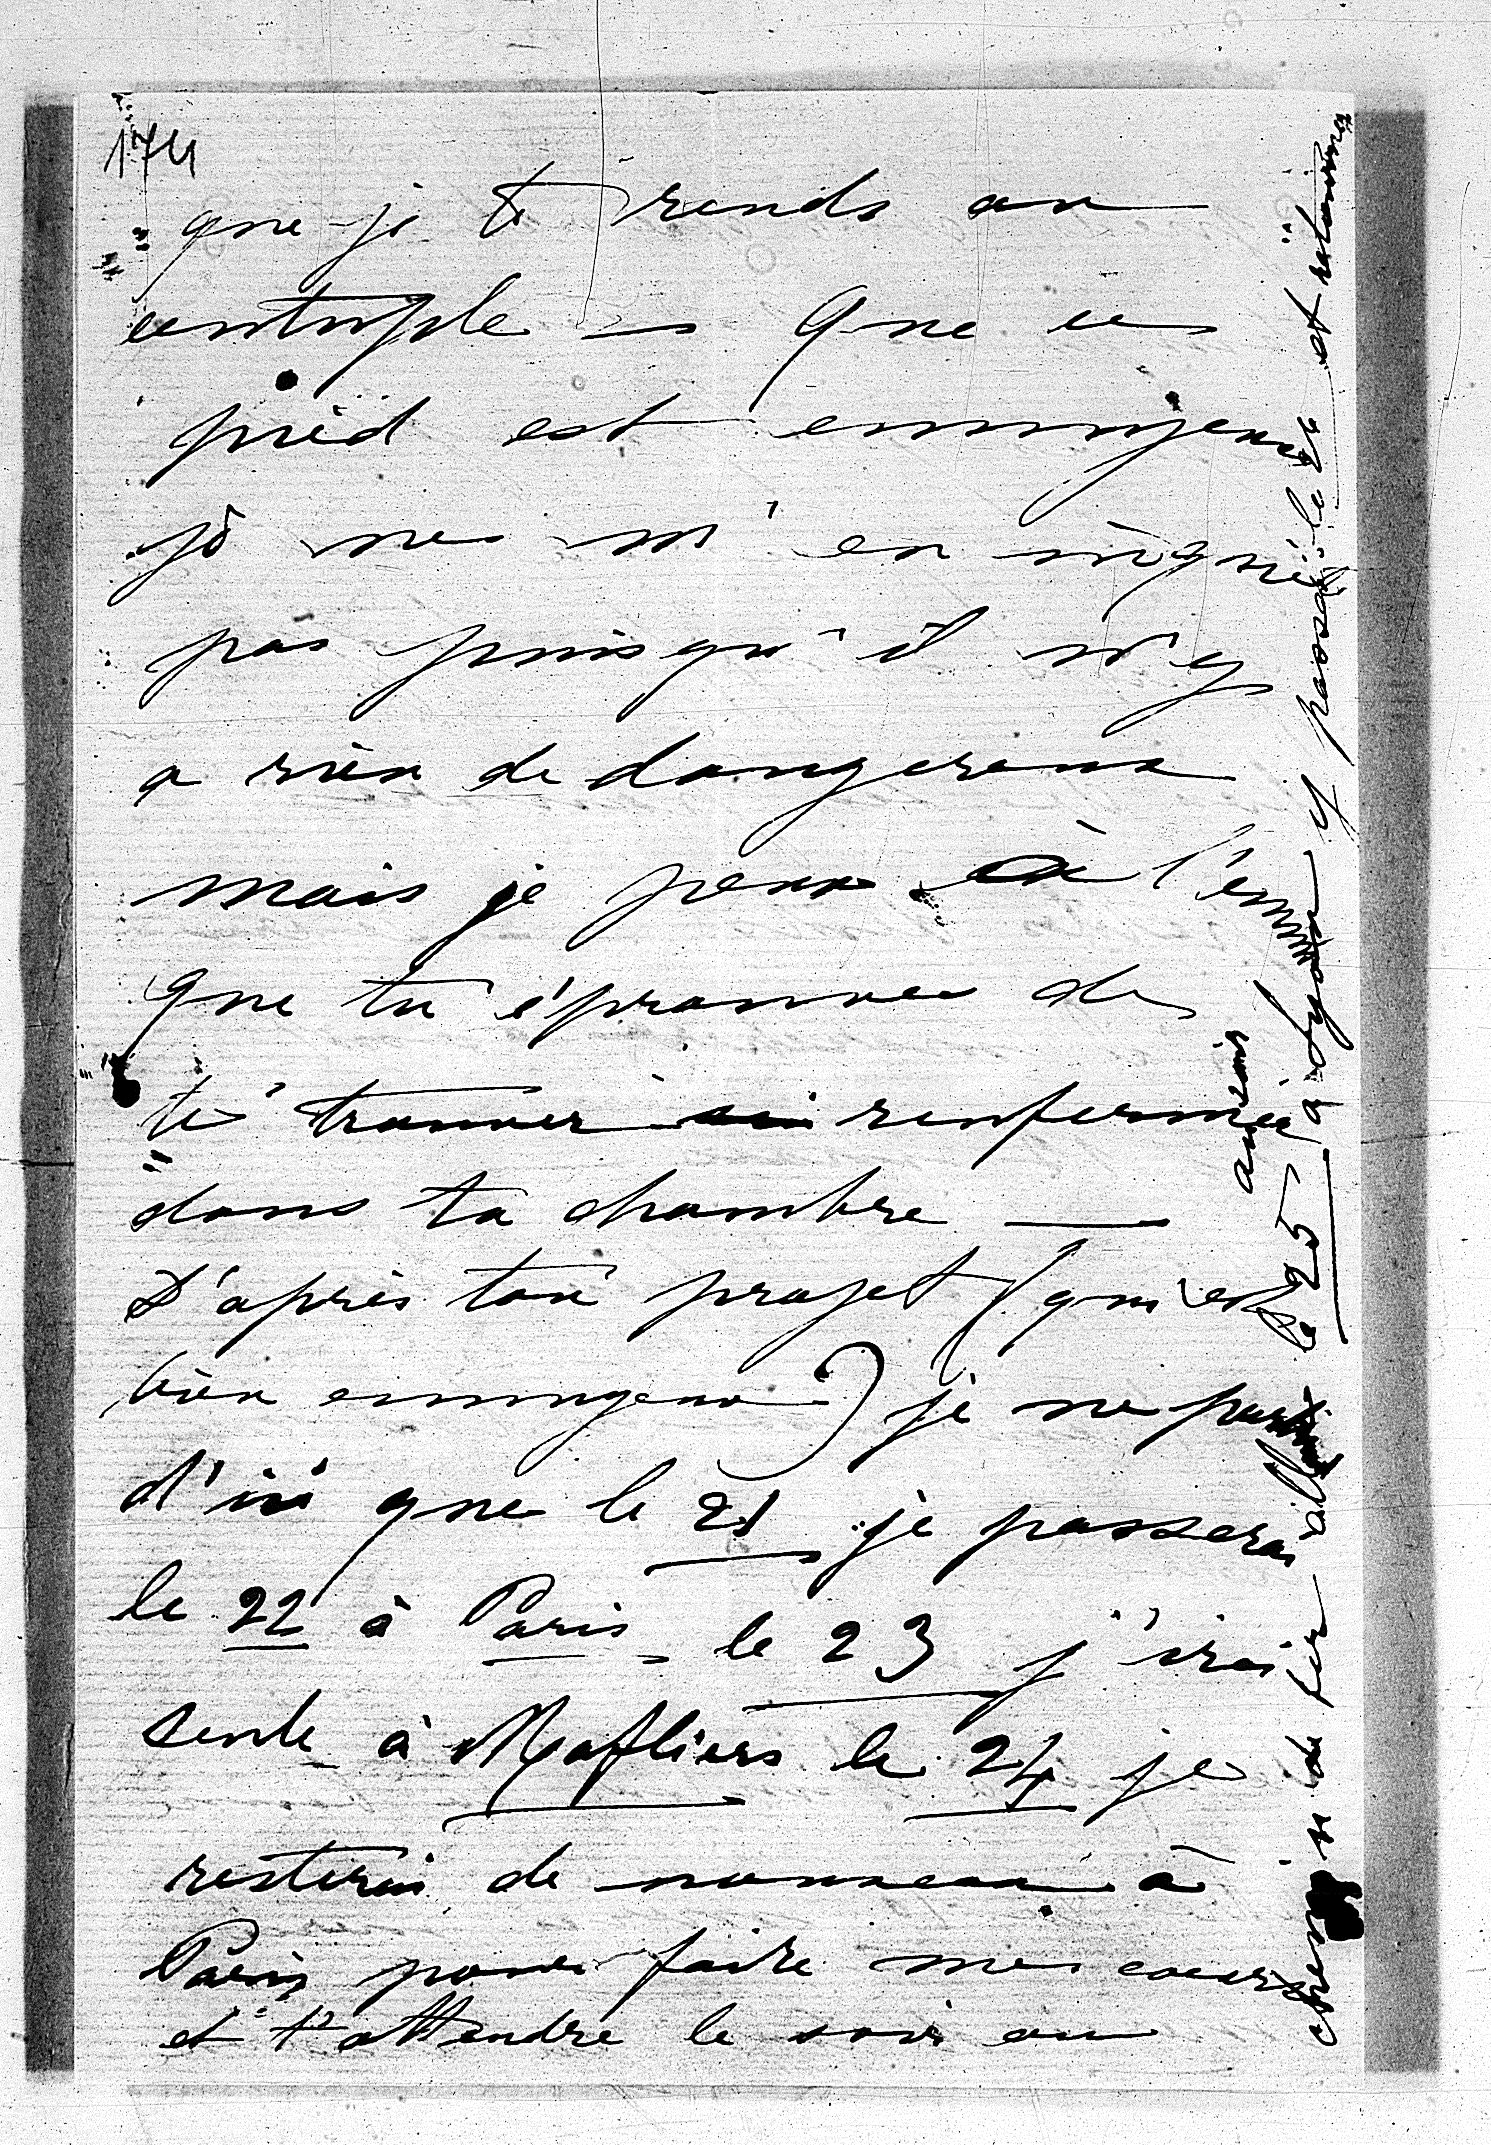 174
que je te rends au
centuple — Que ce
pied est ennuyeux
je ne m'en inquiète
pas puisqu'il n'y
a rien de dangereux
mais je pense à l'ennui
que tu éprouves de
te trouver renfermée
dans ta chambre —
D'après ton projet (qui est
bien ennuyeux) je ne pars
d'ici que le 21 je passerai
le 22 à Paris le 23 j'irai
seule à Maffliers le 24 je
resterai de nouveau à
Paris pour faire mes courses
et t'attendre le soir au
chemin de fer aller le 25 au soir
à Lyon y passer le 26 et retourner